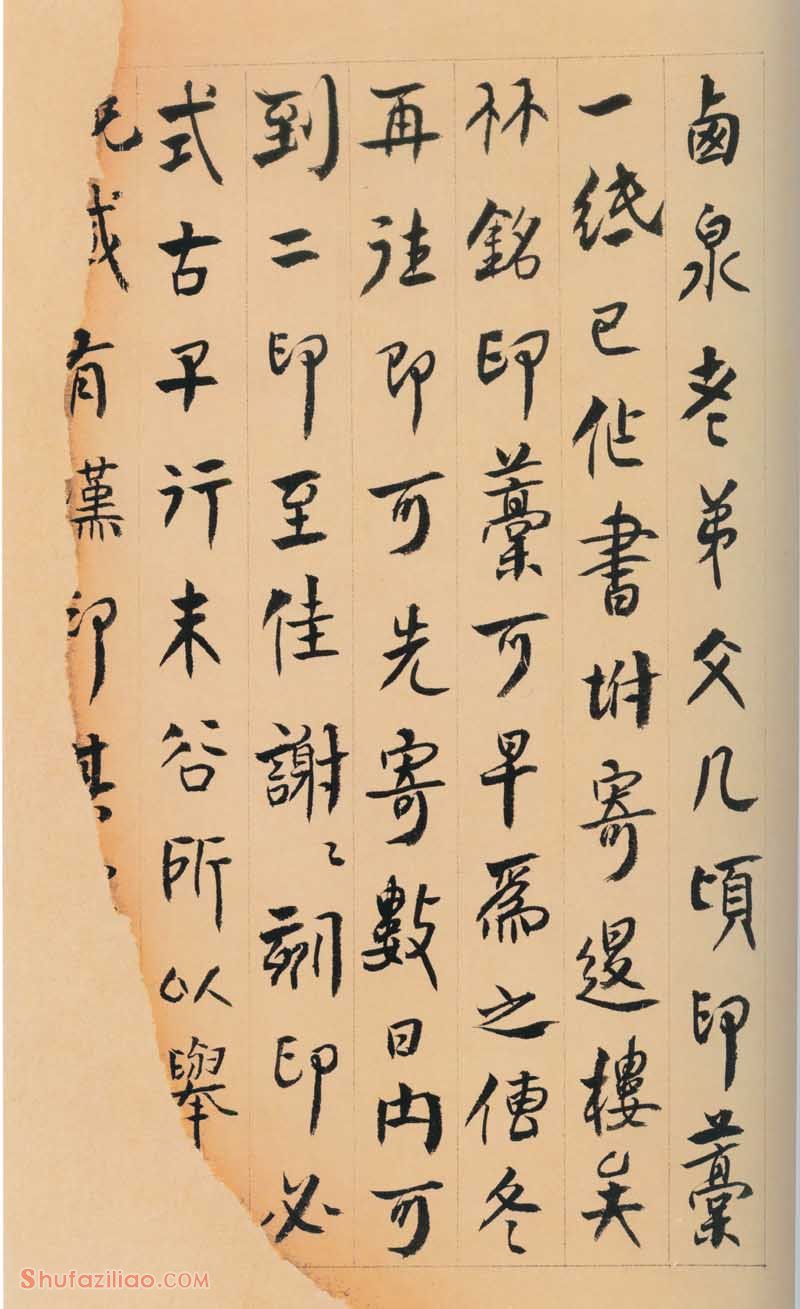 鹵泉老弟父几頃印藁
一紙已作書坿寄邊樓矣
林銘印藁可早爲之傳冬
再往即可先寄數日内可
到二印至佳謝〻刻印必
式古早行末谷所以舉
或有漢印其
Shufaziliao.COM